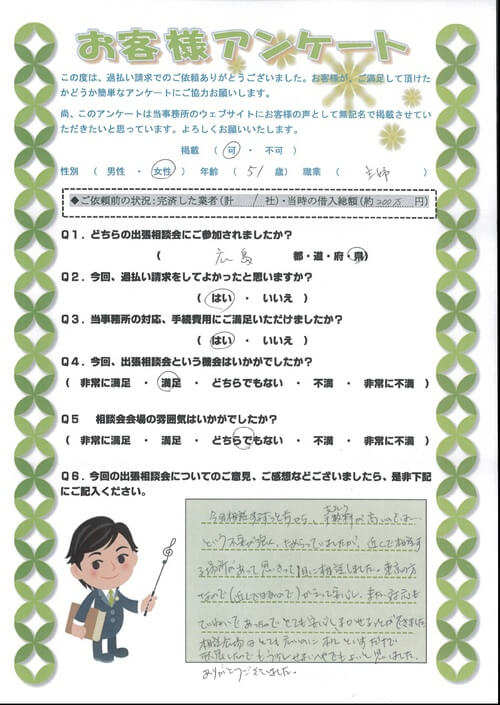 お客様アンケート
この度は、過払い請求でのご依頼ありがとうございました。お客様が、ご満足して頂けた
かどうか簡単なアンケートにご協力お願いします。
尚、このアンケートは当事務所のウェブサイトにお客様の声として無記名で掲載させてい
ただきたいと思っています。よろしくお願いいたします。
掲載 （ 可 ・ 不可 ）
性別 （ 男性 ・ 女性 ） 年齢 （ 51 歳） 職業 （ 主婦 ）
◆ご依頼前の状況：完済した業者（計 1 社）・当時の借入総額（約 200万 円）
Q1．どちらの出張相談会にご参加されましたか？
（ 広島 都・道・府・県）
Q2．今回、過払い請求をしてよかったと思いますか？
（ はい ・ いいえ ）
Q3．当事務所の対応、手続費用にご満足いただけましたか？
（ はい ・ いいえ ）
Q4．今回、出張相談会という機会はいかがでしたか？
（ 非常に満足 ・ 満足 ・ どちらでもない ・ 不満 ・ 非常に不満 ）
Q5 相談会会場の雰囲気はいかがでしたか？
（ 非常に満足 ・ 満足 ・ どちらでもない ・ 不満 ・ 非常に不満 ）
Q6．今回の出張相談会についてのご意見、ご感想などございましたら、是非下記
にご記入ください。
今回相談するずっと前から、手数料が高いのでは…
という不安が強く、ためらっていましたが、近くで相談す
る場所があって思いきって相談しました。東京の方
なので
ていねいであったのでとても安心しまかせることができました
相談会場はとても広いのに
もう少しせまいへやでもよいと思いました。
ありがとうございました。